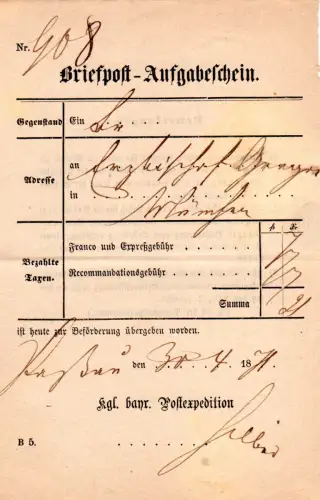 Nr. 908
Briefpost-Aufgabeschein.
Gegenstand Ein Br . . .
Adresse
an Erzbischof Gregor
in . . . . . . . . . .
München
fl. kr.
Bezahlte Taxen.
Franco und Expreßgebühr . . . . . . 7
Recommandationsgebühr . . . . . 
Summa 21
ist heute zur Beförderung übergeben worden.
Passau den 30. 4. 1871.
Kgl. bayr. Postexpedition
B 5. . . . . . . .